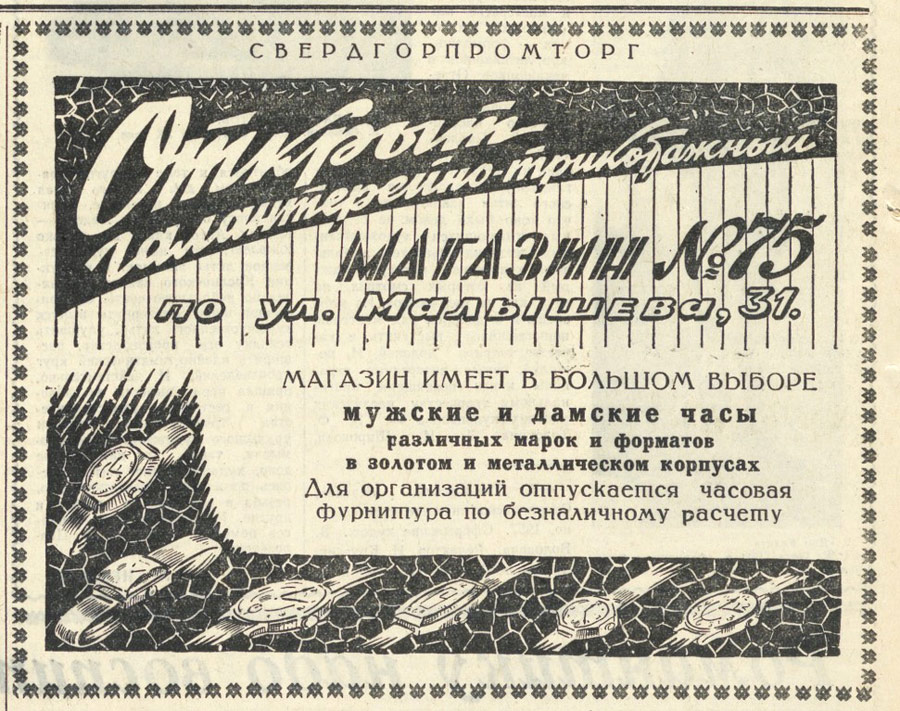 СВЕРДГОРПРОМТОРГ
Открыт
галантерейно-трикотажный
МАГАЗИН №75
по ул. Малышева, 31.
МАГАЗИН ИМЕЕТ В БОЛЬШОМ ВЫБОРЕ
мужские и дамские часы
различных марок и форматов
в золотом и металлическом корпусах
Для организаций отпускается часовая
фурнитура по безналичному расчету